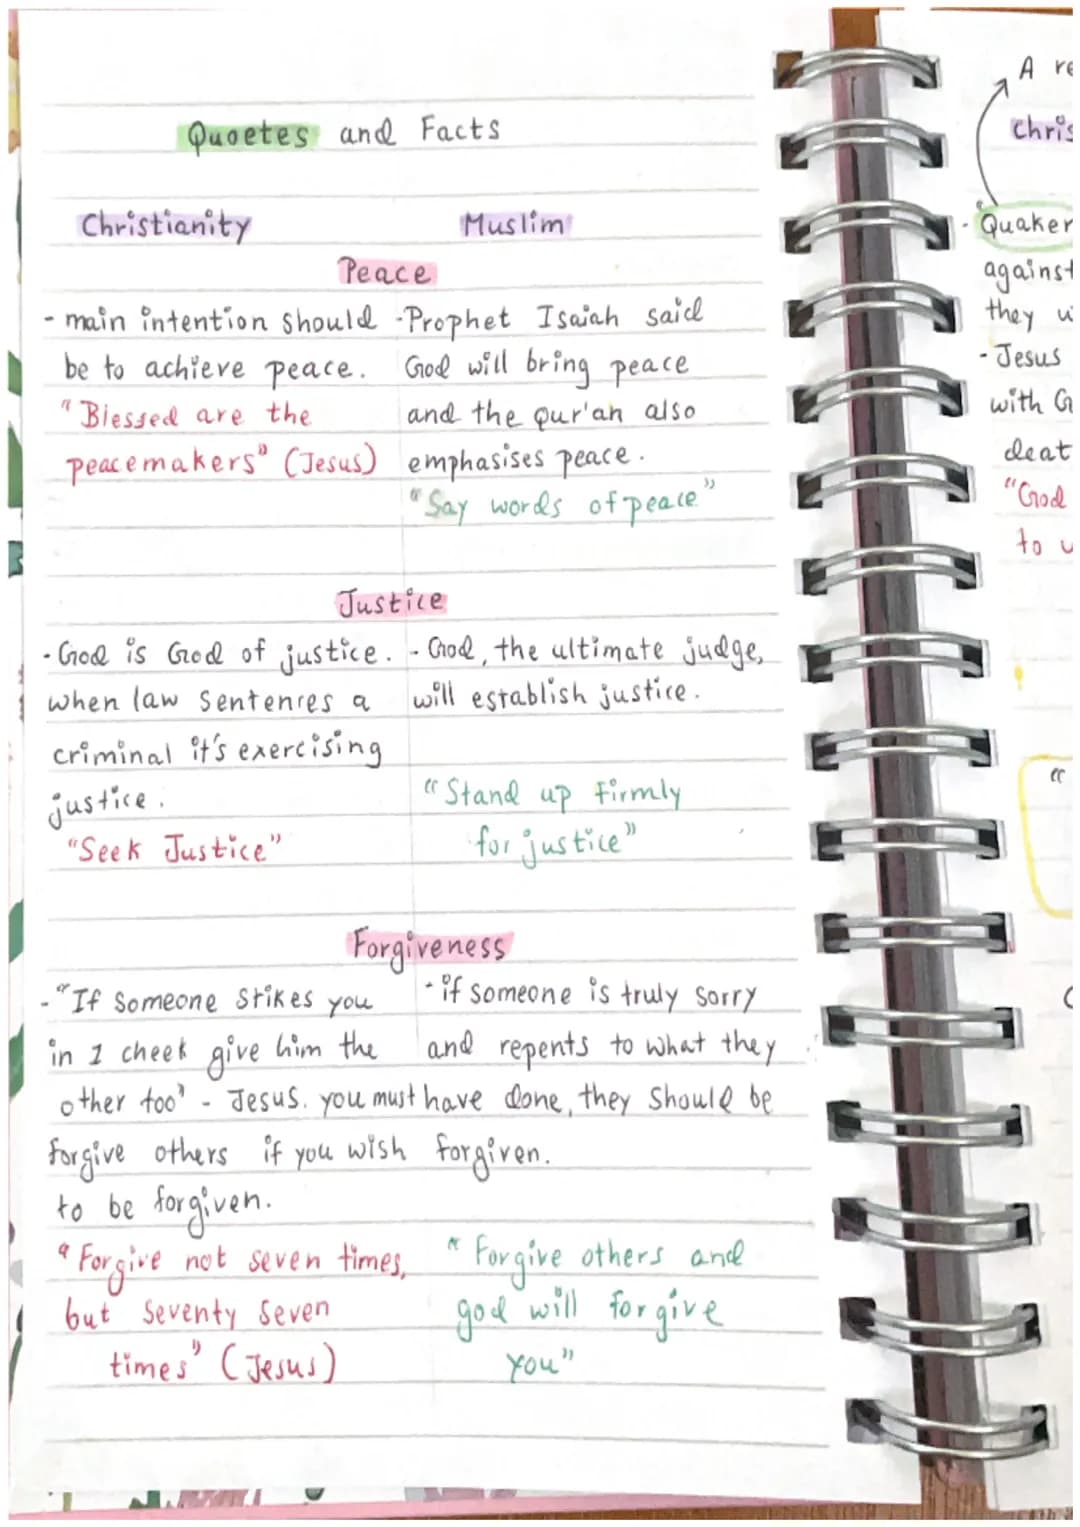 Quoetes and Facts
Christianity
Muslim
Peace
- main intention should
be to achieve peace.
"Blessed are the
peacemakers" (Jesus)
-Prophet Isaiah said
God will bring peace
and the Qur'an also
emphasises peace.
"Say words of peace"
Justice
- God is God of justice.
when law sentenres a
criminal it's exercising
justice.
"Seek Justice"
- God, the ultimate judge,
will establish justice.
"Stand up firmly
for justice"
Forgiveness
- "If someone stikes you
in 1 cheek give him the
other too" - Jesus. you must
forgive others if you wish
to be forgiven.
"Forgive not seven times,
but seventy seven
times" (Jesus)
- if someone is truly sorry
and repents to what they
have done, they should be
forgiven.
"Forgive others and
god will forgive
you"
A re
Chris
- Quaker
against
they w
- Jesus
with G
deat
"God
to u
"